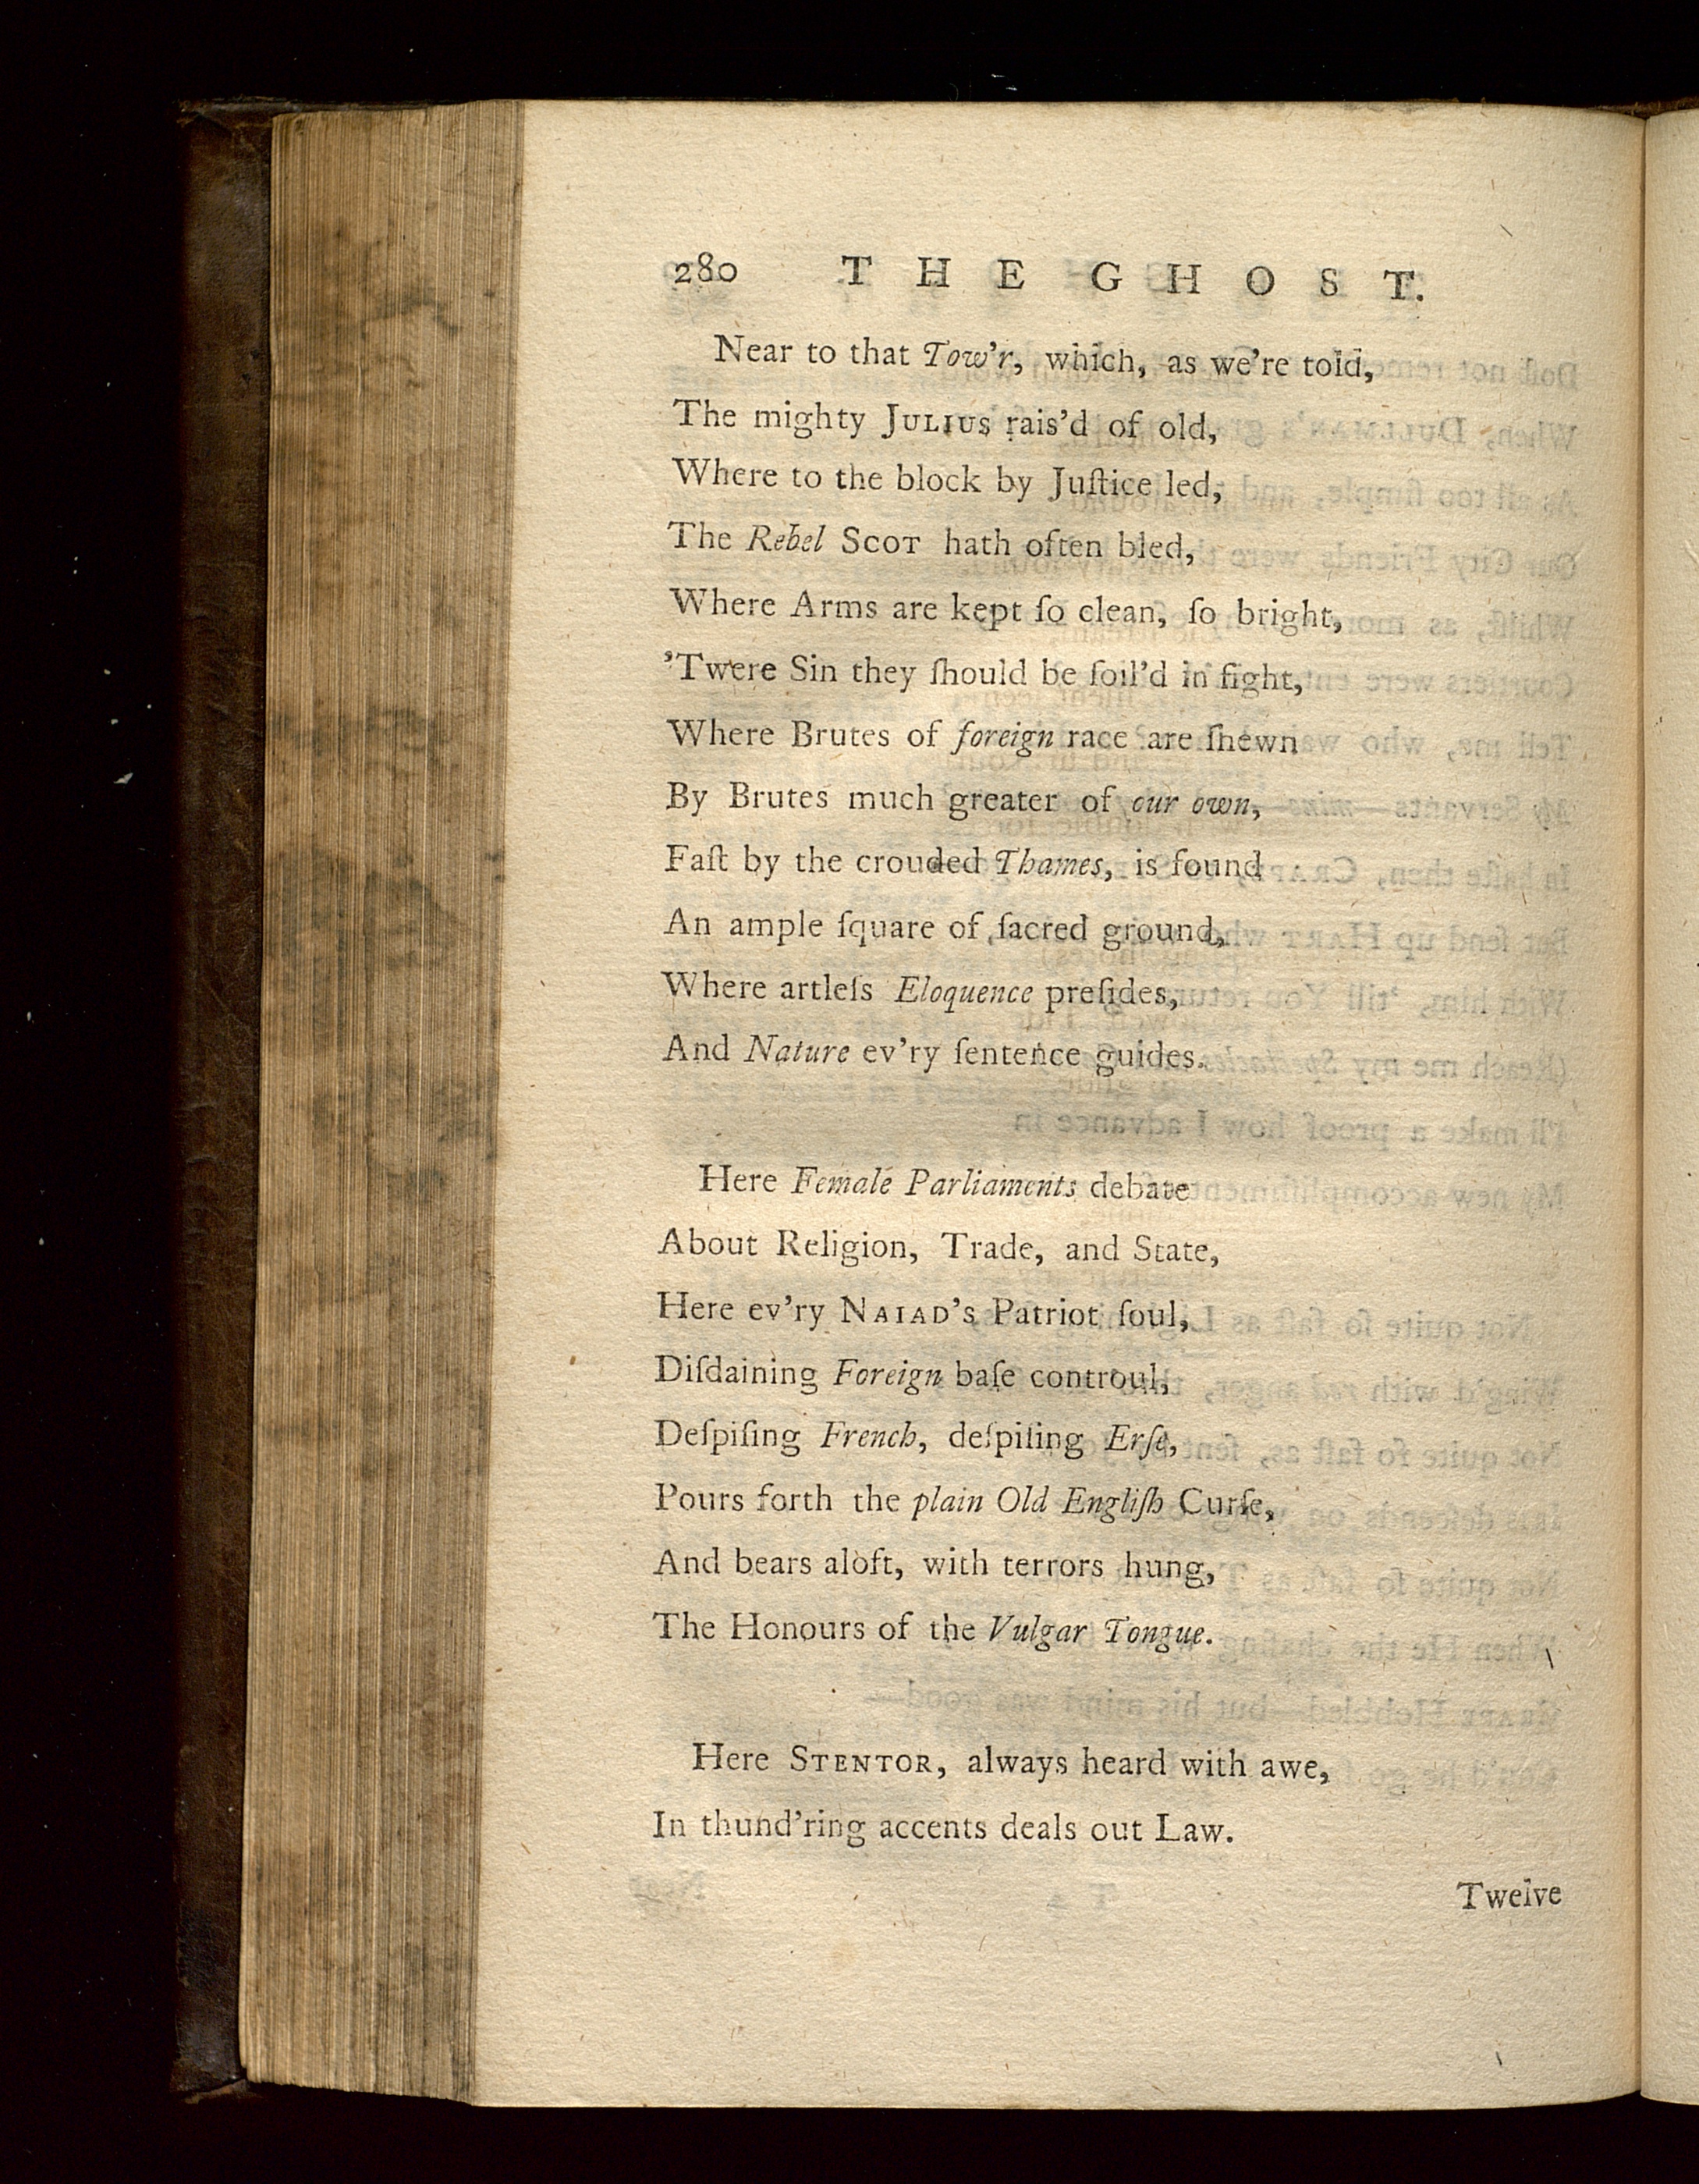 280 THE GHOST.
Near to that Tow'r, which, as we're told,
The mighty JULIUS rais'd of old,
Where to the block by Juſtice led,
The Rebel SCOT hath often bled,
Where Arms are kept ſo clean, ſo bright,
'Twere Sin they ſhould be ſoil'd in fight,
Where Brutes of foreign race are ſhewn
By Brutes much greater of our own,
Faſt by the crouded Thames, is found
An ample ſquare of ſacred ground,
Where artleſs Eloquence preſides,
And Nature ev'ry ſentence guides.
Here Female Parliaments debate
About Religion, Trade, and State,
Here ev'ry NAIAD'S Patriot ſoul,
Diſdaining Foreign baſe controul,
Deſpiſing French, deſpiſing Erſe,
Pours forth the plain Old Engliſh Curſe,
And bears aloft, with terrors hung,
The Honours of the Vulgar Tongue.
Here STENTOR, always heard with awe,
In thund'ring accents deals out Law.
Twelve